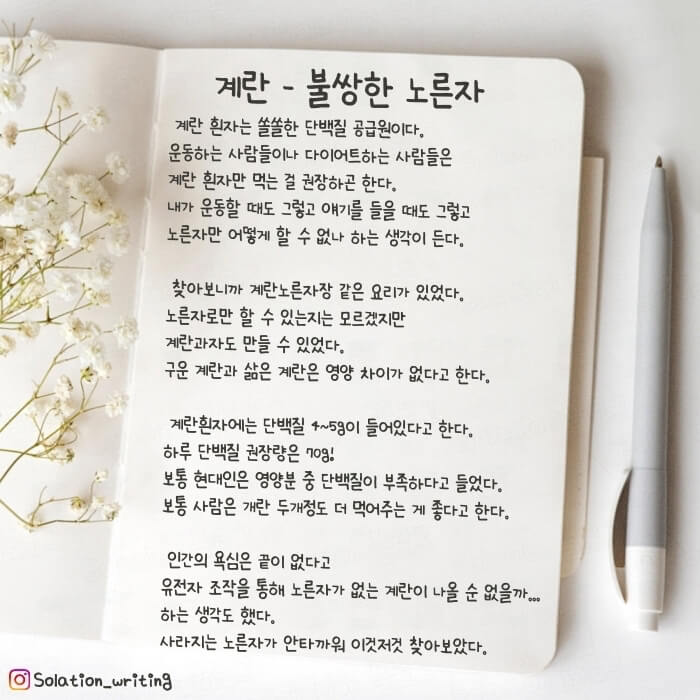 계란 - 불쌍한 노른자
계란 흰자는 쏠쏠한 단백질 공급원이다.
운동하는 사람들이나 다이어트하는 사람들은
계란 흰자만 먹는 걸 권장하곤 한다.
내가 운동할 때도 그렇고 얘기를 들을 때도 그렇고
노른자만 어떻게 할 수 없나 하는 생각이 든다.
찾아보니까 계란노른자장 같은 요리가 있었다.
노른자로만 할 수 있는지는 모르겠지만
계란과자도 만들 수 있었다.
구운 계란과 삶은 계란은 영양 차이가 없다고 한다.
계란흰자에는 단백질 4~5g이 들어있다고 한다.
하루 단백질 권장량은 70g!
보통 현대인은 영양분 중 단백질이 부족하다고 들었다.
보통 사람은 개란 두개정도 더 먹어주는 게 좋다고 한다.
인간의 욕심은 끝이 없다고
유전자 조작을 통해 노른자가 없는 계란이 나올 순 없을까...
하는 생각도 했다.
사라지는 노른자가 안타까워 이것저것 찾아보았다.
Solation_writing